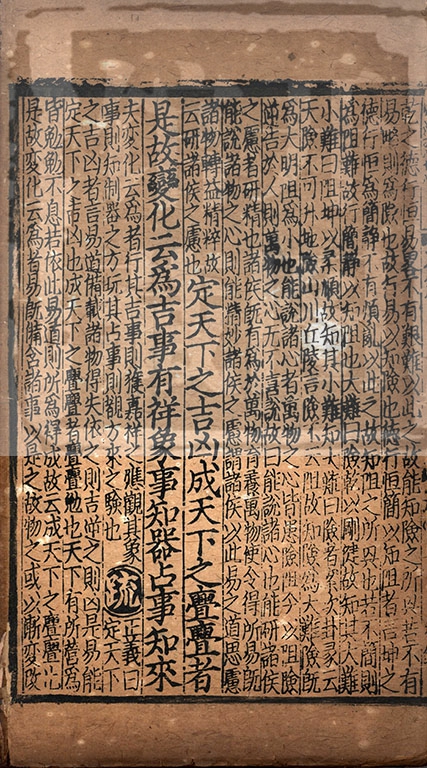 乾之德行恒易畧不有艱難以此之故能知險之所興若不有
易畧則為險也故行易以知險也德行恒簡以知阻者言坤之
德行恒為簡靜不有煩亂以此之故知阻之所興也若不簡則
為阻難故行簡靜以知阻也大難曰險乾以剛健故知其大難
小難曰阻坤以柔順故知其小難知大難曰險者案坎卦彖云
天險不可升地險山川丘陵言險不云阻故知險為大難險既
為大明阻為小也能說諸心者萬物之心皆患險阻今以阻險
逆告於人則萬物之心无不喜說故曰能說諸心也能研諸侯
之慮者研精也諸侯既有為於萬物育養萬物使令得所易既
能說諸物之心則能精妙諸侯之慮謂諸侯以此易之道思慮
諸物轉益精粹故
云研諸侯之慮也
定天下之吉凶成天下之亹亹者
是故變化云為吉事有祥象事知器占事知來
夫變化云為者行其吉事則獲嘉祥之應觀其象
事則知制器之方玩其占事則覩方來之驗也
疏
正義曰
定天下
之吉凶者言易道備載諸物得失依之則吉逆之則凶是易能
定天下之吉凶也成天下之亹亹者亹亹勉也天下有所營為
皆勉勉不息若依此易道則所為得成故云成天下之亹亹也
是故變化云為者易既備含諸事以是之故物之或以漸變改